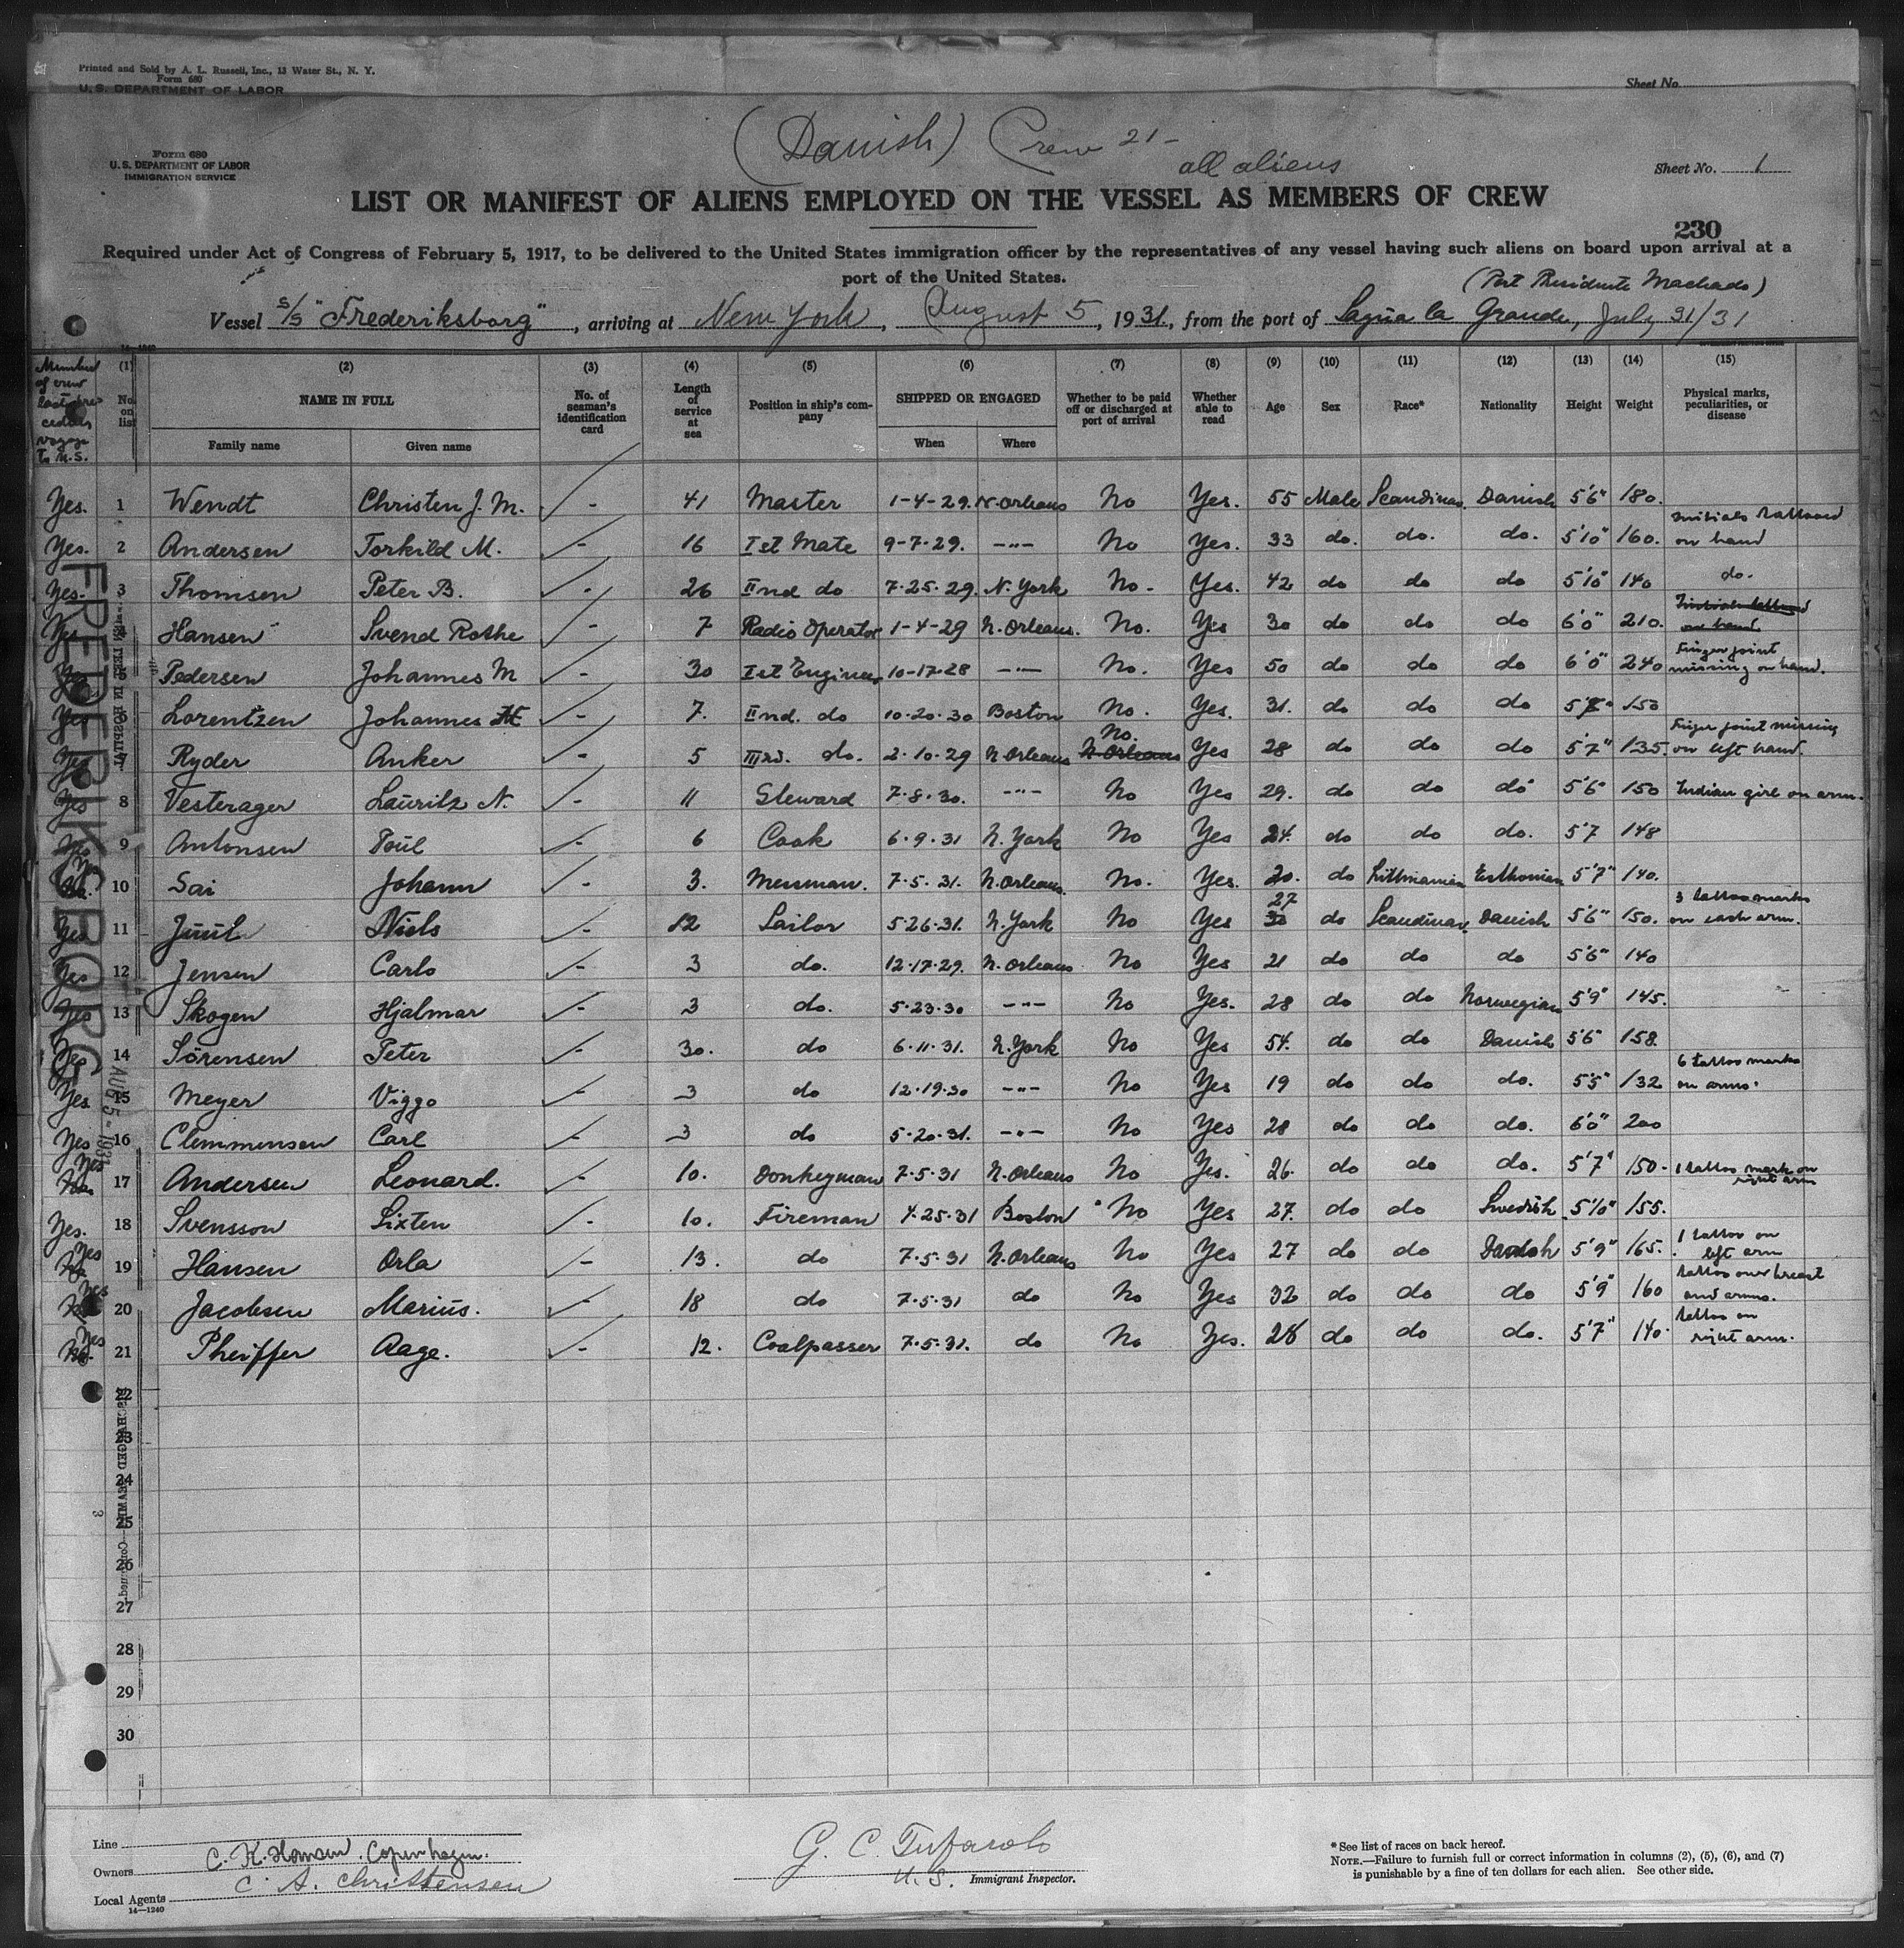 Printed and Sold by A. L. Russell, Inc., 13 Water St., N. Y.
Form 680
U. S. DEPARTMENT OF LABOR
Sheet No.
(Danish) Crew 21 -
all aliens
Form 680
U. S. DEPARTMENT OF LABOR
IMMIGRATION SERVICE
Sheet No. 1
LIST OR MANIFEST OF ALIENS EMPLOYED ON THE VESSEL AS MEMBERS OF CREW
230
Required under Act of Congress of February 5, 1917, to be delivered to the United States immigration officer by the representatives of any vessel having such aliens on board upon arrival at a
port of the United States.
(Port Presidente Machado)
Vessel S/S "Frederiksborg", arriving at New York, August 5, 1931, from the port of Sagua la Grande, July 31/31
Member of crew last pre-ceding voyage to U.S.
(1) No. on list
(2) NAME IN FULL
Family name Given name
(3) No. of seaman's identification card
(4) Length of service at sea
(5) Position in ship's company
(6) SHIPPED OR ENGAGED
When Where
(7) Whether to be paid off or discharged at port of arrival
(8) Whether able to read
(9) Age
(10) Sex
(11) Race*
(12) Nationality
(13) Height
(14) Weight
(15) Physical marks, peculiarities, or disease
Yes. 1 Wendt Christen J. M. - 41 Master 1-4-29. N-Orleans No Yes. 55 Male Scandinav. Danish 5'6" 180.
Yes. 2 Andersen Torkild M. - 16 Ist Mate 9-7-29. -"- No Yes. 33 do. do. do. 5'10" 160. Initials tattooed on hand
Yes. 3 Thomsen Peter B. - 26 IInd do 7-25-29. N. York No. Yes. 42 do do do 5'10" 140 do.
Yes 4 Hansen Svend Rothe - 7 Radio Operator 1-4-29 N. Orleans. No. Yes 30 do do do 6'0" 210. Initials tattooed on hand
Yes 5 Pedersen Johannes M - 30 Ist Engineer 10-17-28 -"- No. Yes 50 do do do 6'0" 240 Finger joint missing on hand.
Yes 6 Lorentzen Johannes - 7. IInd. do 10-20-30 Boston No. Yes. 31. do do do 150
Yes 7 Ryder Anker - 5 IIIrd. do. 2-10-29 N Orleans No. N. Orleans Yes 28 do do do 5'7" 135. Finger joint missing on left hand.
Yes 8 Vesterager Lauritz N. - 11 Steward 7-8-30. -"- No Yes 29. do do do 5'6" 150 Indian girl on arm.
Yes 9 Antonsen Poul - 6 Cook 6-9-31 N. York No Yes 24. do do do. 5'7 148
10 Sai Johann - 3. Messman. 7-5-31. N. Orleans. No. Yes. 20. do Lithuanian Esthonian 5'7" 140.
Yes 11 Juul Niels - 12 Sailor 5-26-31. N. York No Yes 27 30 do Scandinav. Danish 5'6" 150. 3 tattoo marks on each arm.
Yes 12 Jensen Carlo - 3 do. 12-17-29. N. Orleans No Yes 21 do do do 5'6" 140
Yes 13 Skogen Hjalmar - 3 do. 5-23-30 -"- No Yes. 28 do do Norwegian 5'9" 145.
Yes 14 Sörensen Peter - 30. do 6-11-31. N. York No Yes 54. do do Danish 5'6 158.
Yes 15 Meyer Viggo - 3 do 12-19-30 -"- No Yes 19 do do do. 5'5" 132 6 tattoo marks on arms.
Yes 16 Clemmensen Carl - 3 do 5-20-31. -"- No Yes 28 do do do. 6'0" 200
Yes No 17 Andersen Leonard. - 10. Donkeyman 7-5-31 N. Orleans No Yes. 26. do do do. 5'7" 150. 1 tattoo mark on right arm
Yes. 18 Svensson Sixten - 10. Fireman 4-25-31 Boston No Yes 27. do do Swedish 5'10" 155.
Yes No 19 Hansen Orla - 13. do 7-5-31 N. Orleans No Yes 27 do do Danish 5'9" 165. 1 tattoo on left arm
Yes No 20 Jacobsen Marius. - 18 do 7-5-31 do No Yes 32 do do do 5'9" 160 tattoo over breast and arms.
Yes No. 21 Pheiffer Aage. - 12. Coalpasser 7-5-31. do No Yes. 28 do do do. 5'7" 140. tattoo on right arm.
22
23
24
25
26
27
28
29
30
FREDERIKSBORG
AUG 5 - 1931
Line
Owners C. K. Hansen. Copenhagen.
Local Agents C. A. Christensen
14—1240
G. C. Tufarolo
U.S. Immigrant Inspector.
* See list of races on back hereof.
NOTE.—Failure to furnish full or correct information in columns (2), (5), (6), and (7)
is punishable by a fine of ten dollars for each alien. See other side.